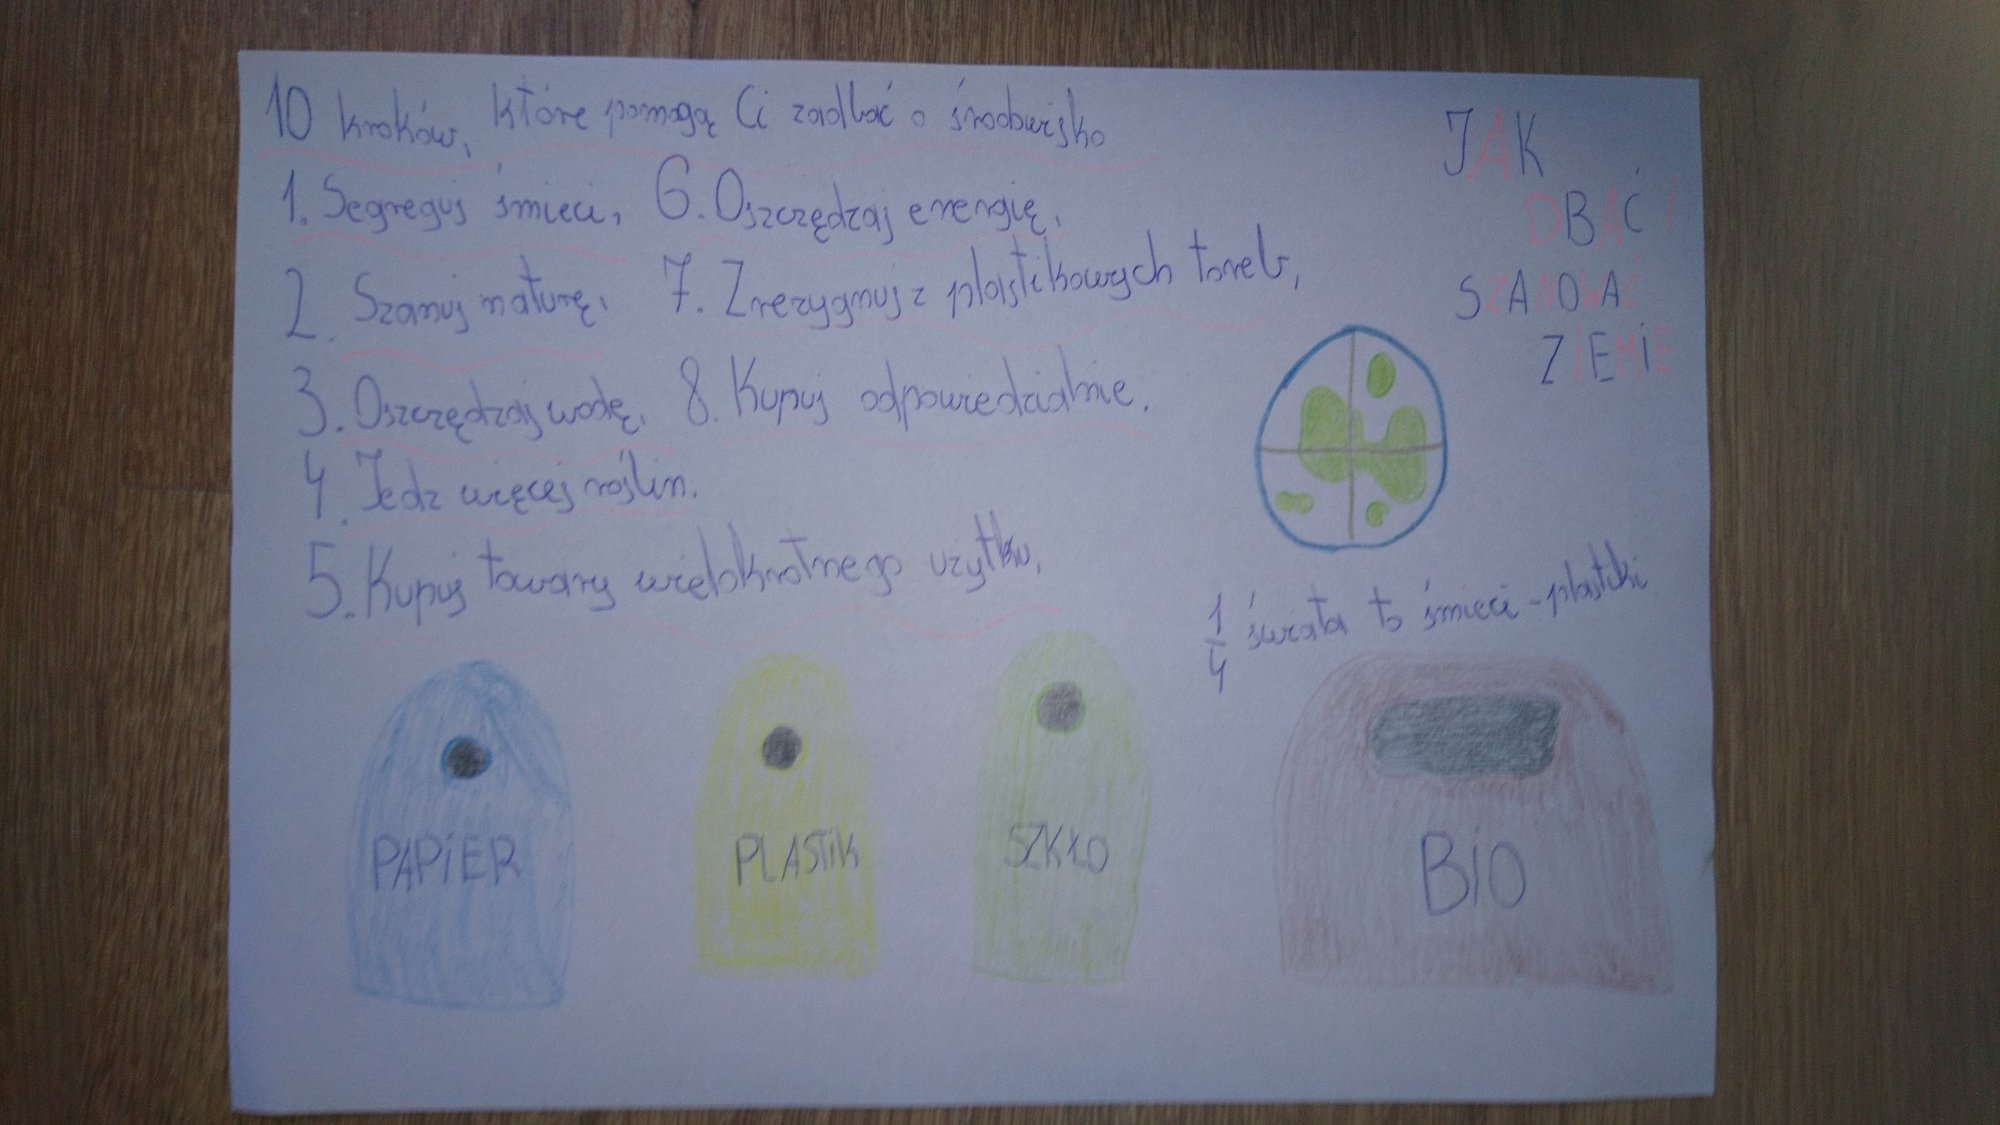 10 kroków, które pomogą Ci zadbać o środowisko
1. Segreguj śmieci,
2. Szanuj naturę,
3. Oszczędzaj wodę,
4. Jedz więcej roślin.
5. Kupuj towary wielokrotnego użytku,
6. Oszczędzaj energię,
7. Zrezygnuj z plastikowych toreb,
8. Kupuj odpowiedzialnie.
JAK
DBAĆ I
SZANOWAĆ
ZIEMIĘ
1/4 świata to śmieci - plastiki
PAPiER
PLASTiK
SZKŁO
BiO